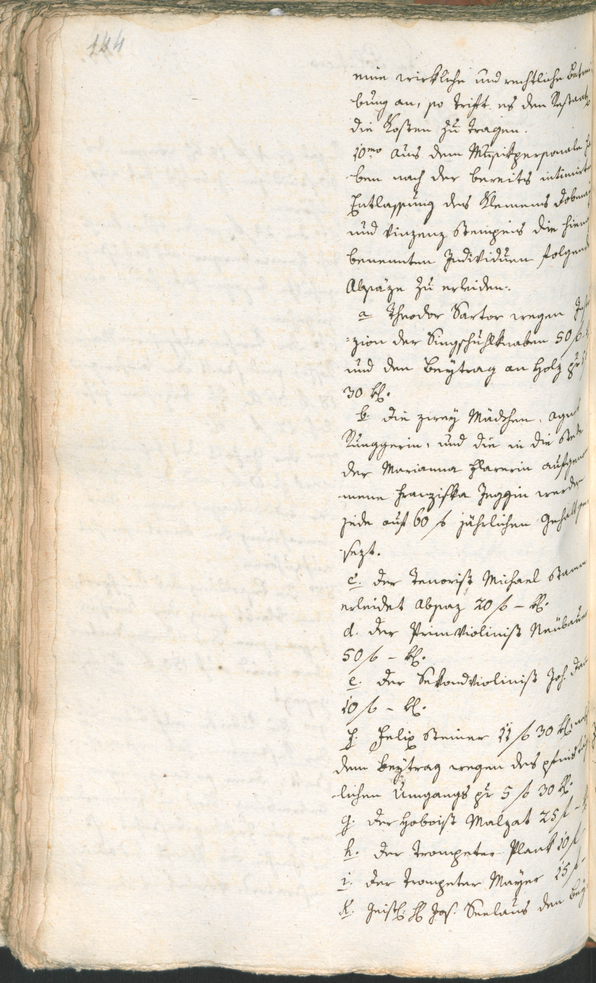 144
eine wirkliche und rechtliche
bung an, so trift es den
die Kosten zu tragen.
10mo aus dem Musikpersonale
ben nach der bereits intimirten
Entlassung des Klemens
und Vinzenz Stempeis die hier
benennten Individuen folgende
Abzüge zu erleiden:
a Theodor Sartor wegen
zion der Singschuhlknaben 50 f
und den Beytrag an Holz pr
30 kr.
b. die zwey Mädchen, Agnes
Runggerin, und die in die Stelle
der Marianna Harrerin aufge
mene Franziska Jeggin werden
jede auf 60 f jährlichen Gehalt
sezt.
c. der Tenorist Michael
erleidet Abzug 20 f – kr.
d. der Primviolinist Neubauer
50 f – kr.
e. der Sekondviolinist Joh
10 f – kr.
f. Felix Steiner 11 f 30 kr
dem Beytrag wegen des pfingst
lichen Umgangs pr 5 f 30 kr.
g. der Hoboist Malzat 25 f –
h. der Trompeter Plank 10 f
i. der Trompeter Mayer 15 f –
k. Geistl. H. Jos. Seelaus den